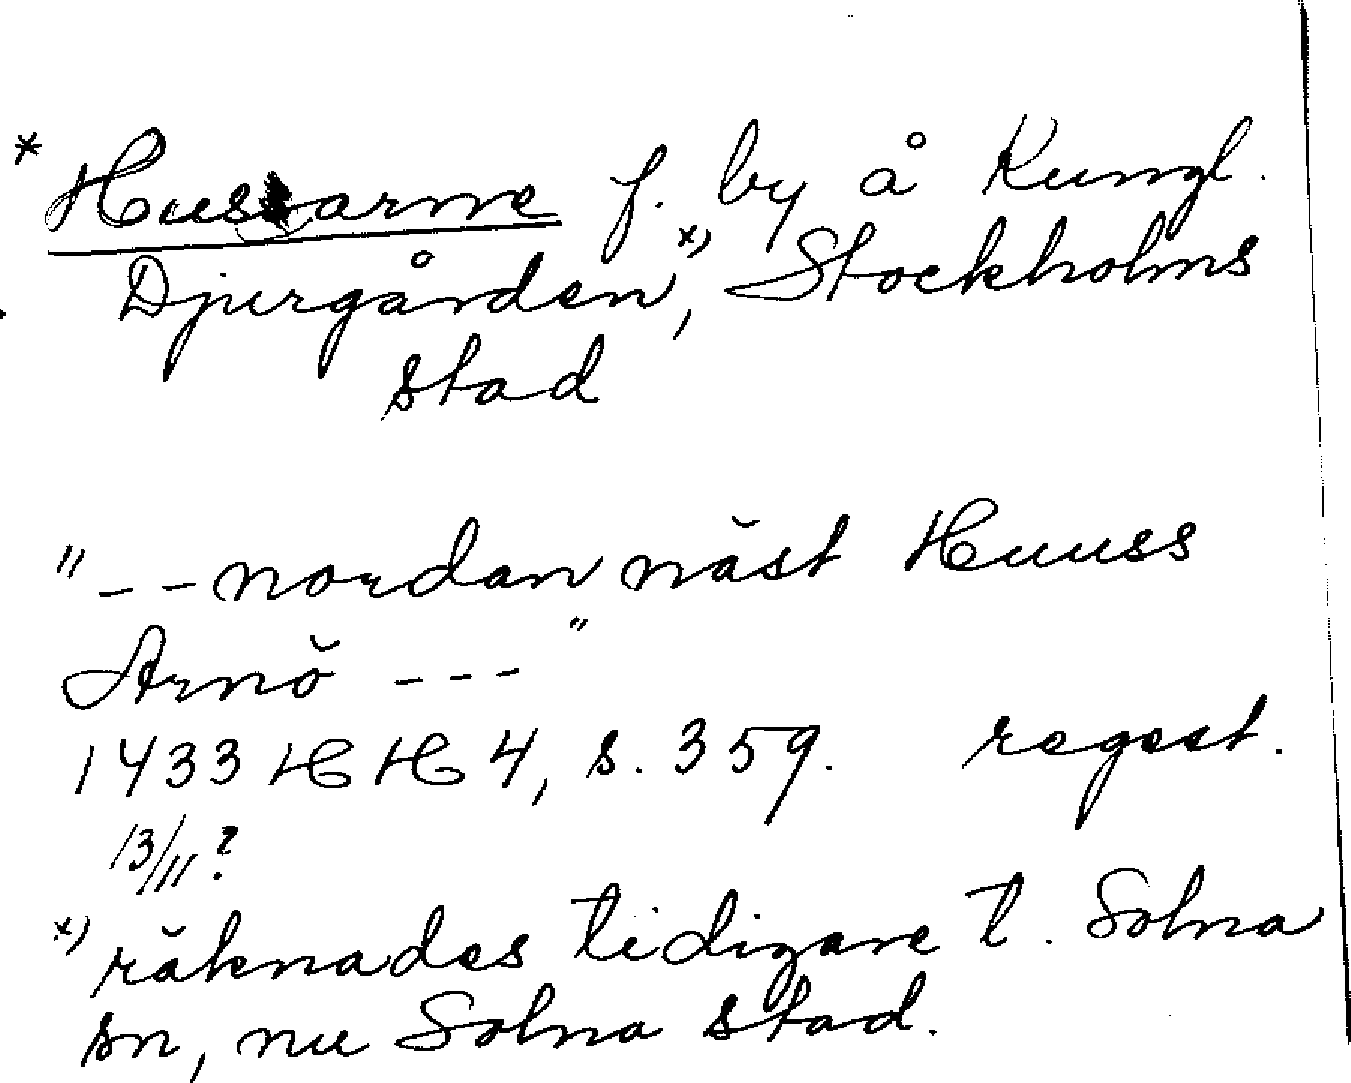 * Husarne f. by å Kungl.
Djurgården,*) Stockholms
stad
"--nordan näst Huuss
Arnö ---"
1433 HH 4, s. 359. regest.
13/11?
*) räknades tidigare t. Solna
sn, nu Solna stad.